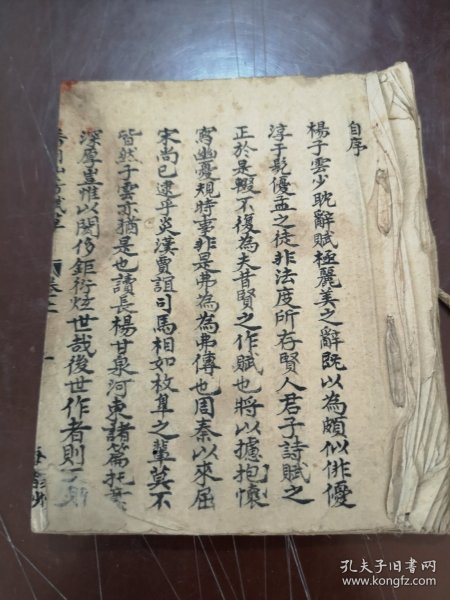 自序
楊子雲少耽辭賦極麗美之辭既以為頗似俳優
淳于髡優孟之徒非法度所存賢人君子詩賦之
正於是輟不復為夫昔賢之作賦也將以攄抱懷
寫幽憂規時事非是弗為為弗傳也周秦以來屈
宋尚已逮乎炎漢賈誼司馬相如枚臯之輩莫不
皆然子雲亦猶是也讀長楊甘泉河東諸篇托義
深厚豈惟以閎侈鉅衍炫世哉後世作者則
孔夫子旧书网
www.kongfz.com